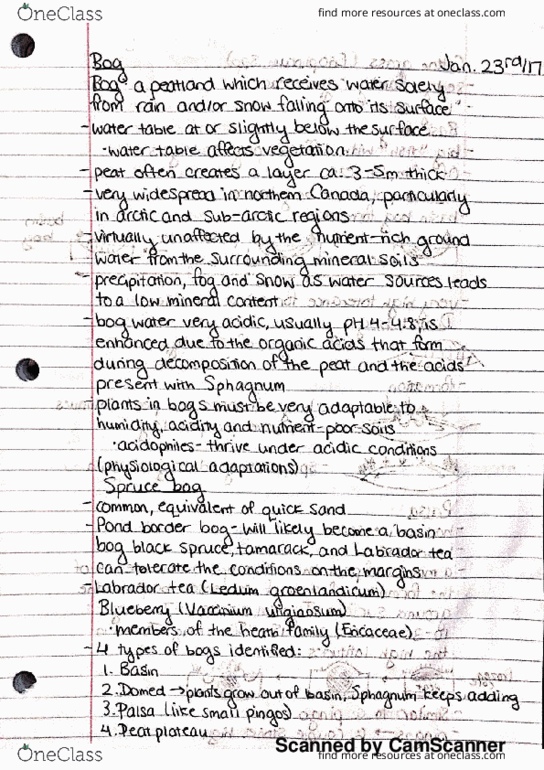 OneClass
find more resources at oneclass.com
Bog
Jan. 23rd/17
"Bog" a peatland which receives water solely
from rain and/or snow falling onto its surface"
- water table at or slightly below the surface
· water table affects vegetation
- peat often creates a layer ca. 3-5m thick
- very widespread in northern Canada, particularly
in arctic and sub-arctic regions
- virtually unaffected by the nutrient-rich ground
water from the surrounding mineral soils
- precipitation, fog and snow as water sources leads
to a low mineral content
- bog water very acidic, usually pH 4-4.8, is
enhanced due to the organic acids that form
during decomposition of the peat and the acids
present with Sphagnum
- plants in bogs must be very adaptable to
humidity, acidity and nutrient-poor soils
· acidophiles- thrive under acidic conditions
(physiological adaptations)
Spruce bog
- common, equivalent of quick sand
- Pond border bog- will likely become a basin
bog black spruce, tamarack, and Labrador tea
can tolerate the conditions on the margins
- Labrador tea (Ledum groenlandicum)
Blueberry (Vaccinium uliginosum)
· members of the heath family (Ericaceae)
- 4 types of bogs identified:
1. Basin
2. Domed → plants grow out of basin, Sphagnum keeps adding
3. Palsa (like small pingos)
4. Peat plateau
Scanned by CamScanner
OneClass
find more resources at oneclass.com